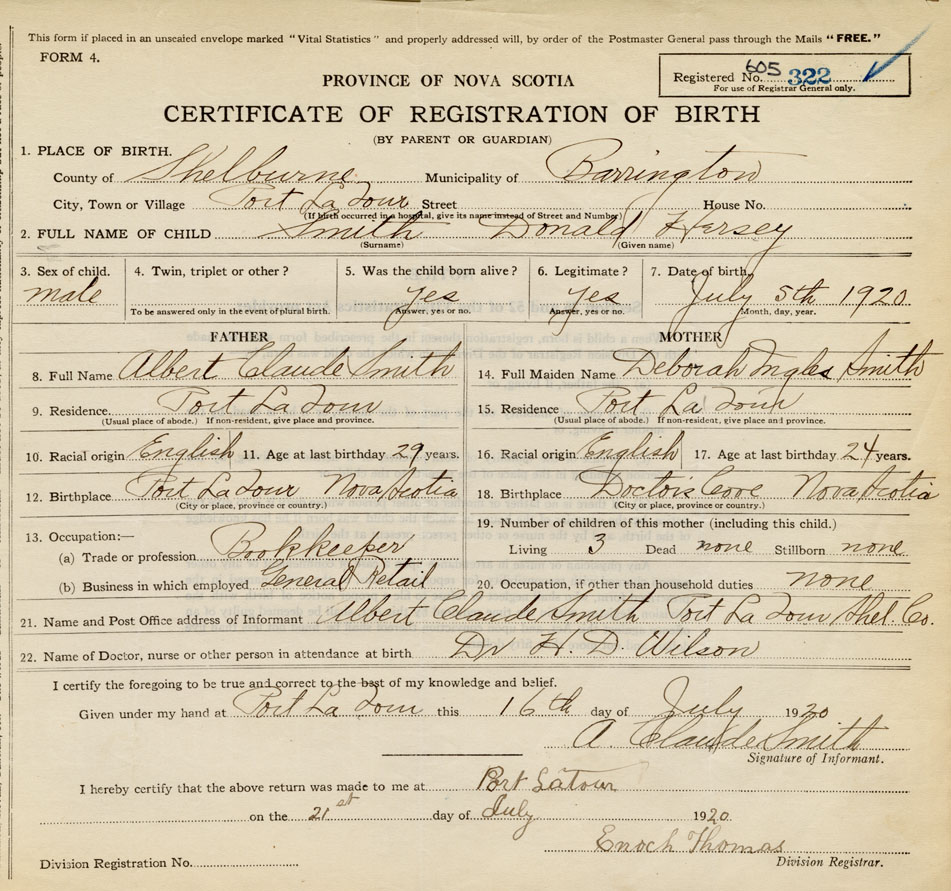 This form if placed in an unsealed envelope marked "Vital Statistics" and properly addressed will, by order of the Postmaster General pass through the Mails "FREE."
FORM 4.
PROVINCE OF NOVA SCOTIA
605
Registered No. 322
For use of Registrar General only.
CERTIFICATE OF REGISTRATION OF BIRTH
(BY PARENT OR GUARDIAN)
1. PLACE OF BIRTH.
County of Shelburne Municipality of Barrington
City, Town or Village Port La Tour Street House No.
(If birth occurred in a hospital, give its name instead of Street and Number)
2. FULL NAME OF CHILD Smith Donald Hersey
(Surname) (Given name)
3. Sex of child. 4. Twin, triplet or other? 5. Was the child born alive? 6. Legitimate? 7. Date of birth,
male yes yes July 5th 1920
To be answered only in the event of plural birth. Answer, yes or no. Answer, yes or no. Month, day, year.
FATHER MOTHER
8. Full Name Albert Claude Smith 14. Full Maiden Name Deborah Ingles Smith
9. Residence. Port La Tour 15. Residence Port La Tour
(Usual place of abode.) If non-resident, give place and province. (Usual place of abode.) If non-resident, give place and province.
10. Racial origin English 11. Age at last birthday 29 years. 16. Racial origin English 17. Age at last birthday 24 years.
12. Birthplace Port La Tour Nova Scotia 18. Birthplace Doctors Cove Nova Scotia
(City or place, province or country.) (City or place, province or country.)
13. Occupation:— 19. Number of children of this mother (including this child.)
(a) Trade or profession Bookkeeper Living 3 Dead none Stillborn none
(b) Business in which employed General Retail 20. Occupation, if other than household duties none
21. Name and Post Office address of Informant Albert Claude Smith Port La Tour Shel. Co.
22. Name of Doctor, nurse or other person in attendance at birth Dr H. D. Wilson
I certify the foregoing to be true and correct to the best of my knowledge and belief.
Given under my hand at Port La Tour this 16th day of July 1920
A. Claude Smith
Signature of Informant.
I hereby certify that the above return was made to me at Port Latour
on the 21st day of July 1920.
Enoch Thomas
Division Registration No. Division Registrar.